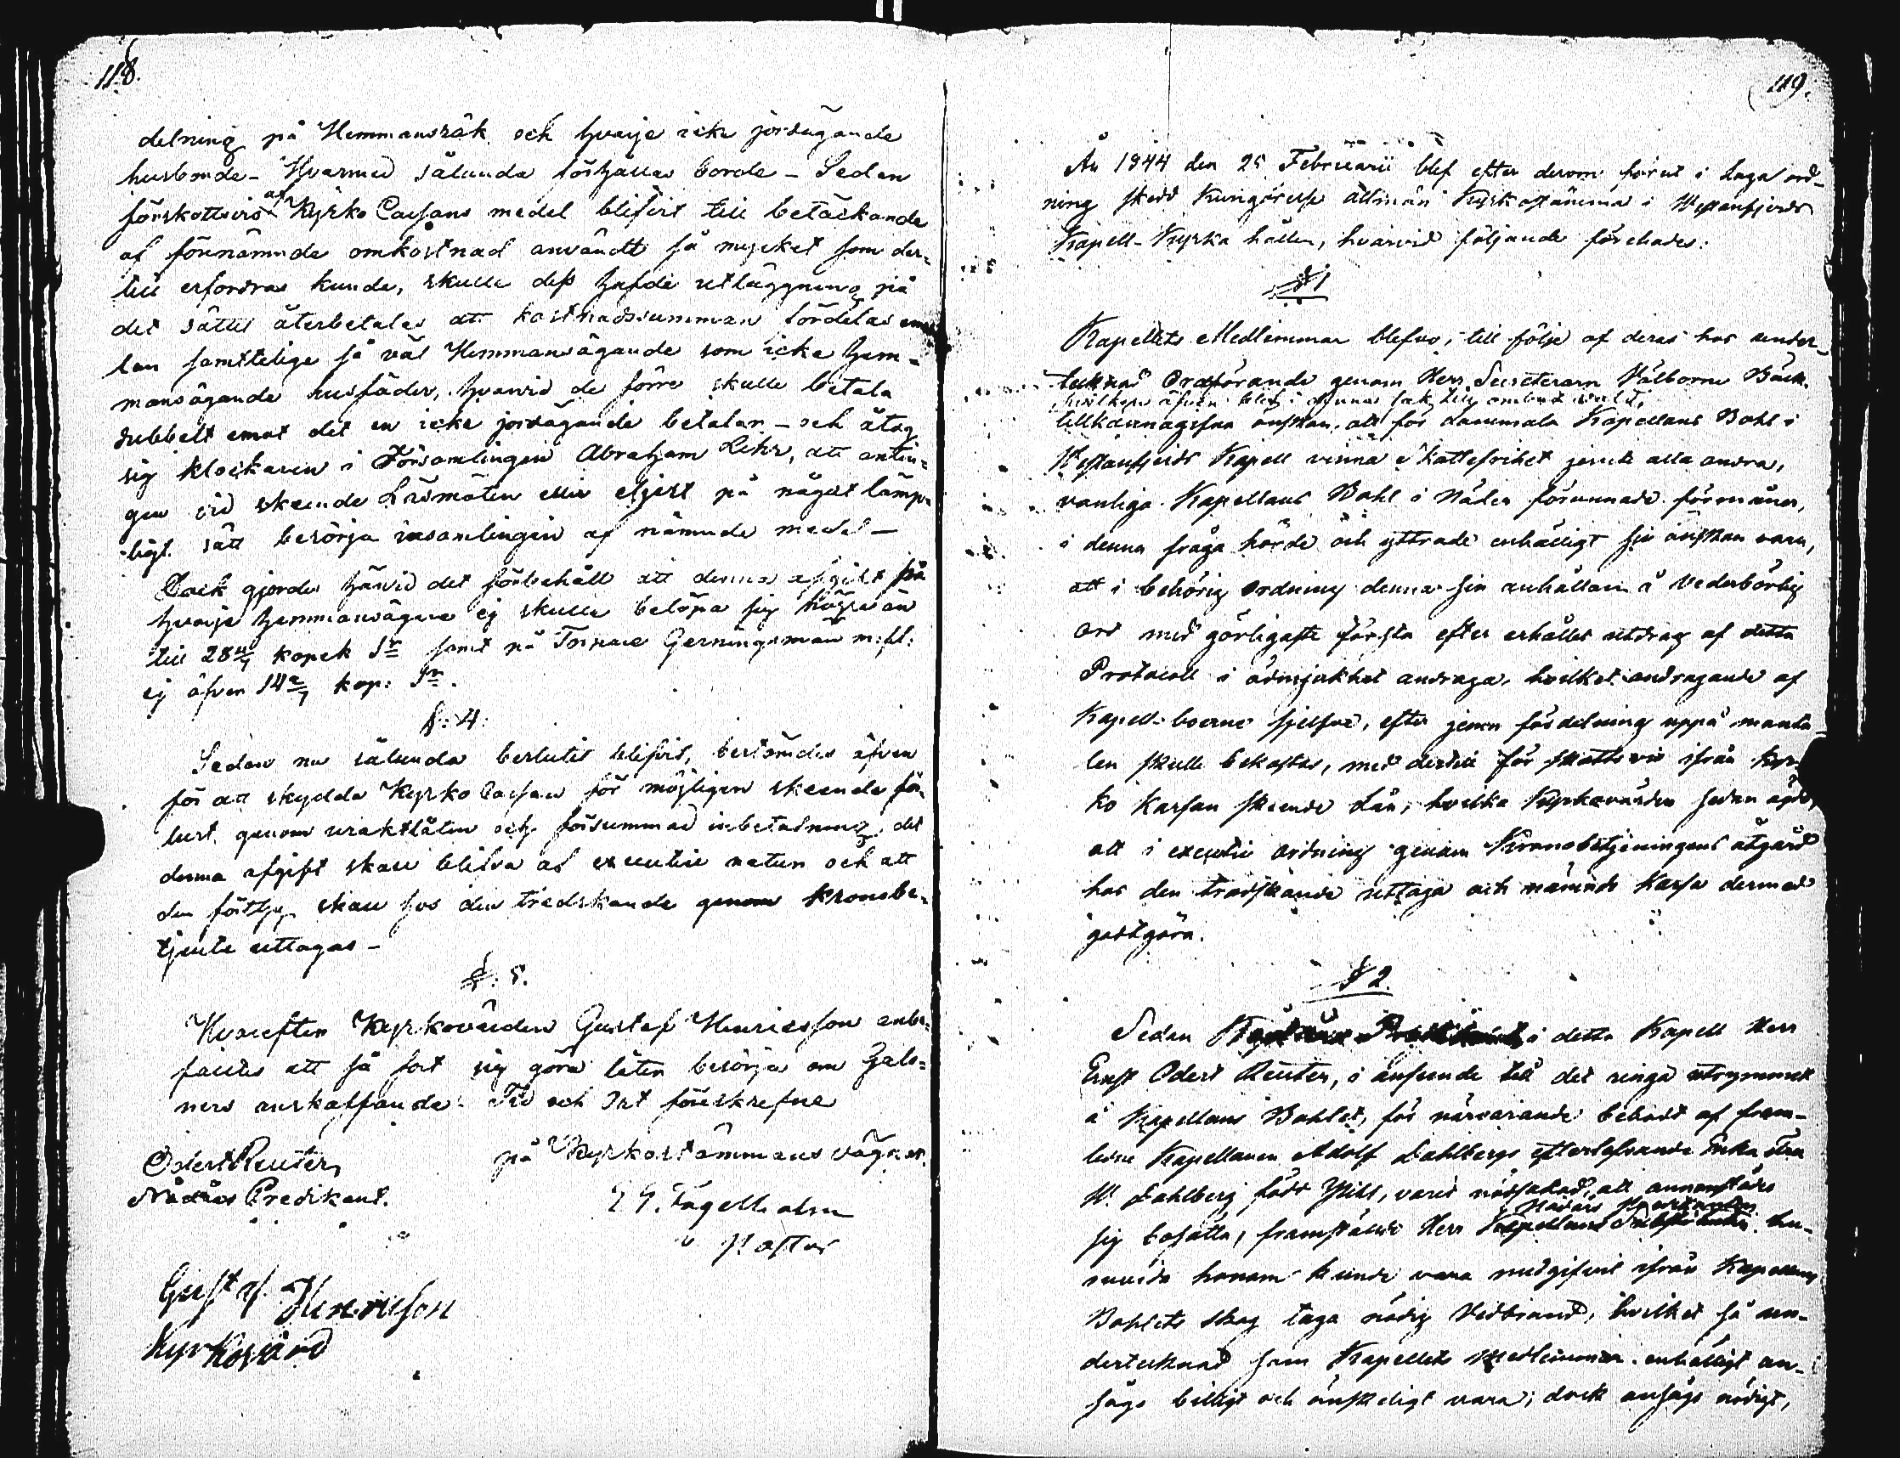 118.
delning på Hemmansrök och hvarje icke jordägande
husbonde – Hvarmed sålunda förhållas borde – Sedan
förskottsvis af Kyrko Cassans medel blifvit till betäckande
af förenämnde omkostnad användt så mycket som der-
till erfordras kunde, skulle dess hafde utläggning på
det sättet återbetalas att kostnadssumman fördelas emel
lan samtelige så väl Hemmansägande som icke hem-
mansägande husfäder, hvarvid de förre skulle betala
dubbelt emot det en icke jordägande betalar – och åtog
sig klockaren i Församlingen Abraham Lihr, att antin-
gen vid skeende Läsmöten eller eljest på något lämp-
ligt sätt besörja insamlingen af nämnde medel –
Dock gjordes härvid det förbehåll att denna afgift för
hvarje hemmansägare ej skulle belöpa sig högre än
till 28 4/7 kopek Sr samt på Torpare Gerningsmän m:fl:
ej öfver 14 2/7 kop: Sr.
§: 4:
Sedan nu sålunda beslutit blifvit, bestämdes äfven
för att skydda Kyrko Cassan för möjligen skeende för-
lust genom uraktlåten och försummad inbetalning, det
denna afgift skall blifva af executiv natur och att
den förty skall hos den tredskande genom kronobe-
tjente uttagas –
§: 5.
Hvarefter Kyrkovärden Gustaf Henricsson anbe-
falldes att så fort sig göra låter besörja om
anskaffande. Tid och Ort föreskrefne
på Kyrkostämmans vägnar.
Odert Reuter,
Nådårs Predikant.
E G. Fagerholm
Pastor
Gust af Henricsson
Kyrkovärd
119.
År 1844 den 25 Februarii blef efter derom förut i laga ord-
ning skedd Kungörelse allmän Kyrkostämma i Westanfjerds
Kapell-Kyrka hållen, hvarvid följande förehades:
§ 1
Kapellets Medlemmar blefvo, till följe af deras hos under-
tecknad Ordförande genom Herr Secreteraren Välborne Bäck
hvilken äfven blef i denna sak till ombud vald,
tillkännagifna önskan, att för
Westanfjerds Kapell vinna Skattefrihet jemte alla andra,
vanliga Kapellans Bohl i Nåder förunnade förmåner,
i denna fråga hörde och yttrade enhälligt sin önskan vara,
att i behörig ordning denna sin anhållan å vederbörlig
ort med görligaste första efter erhållet utdrag af detta
Protocoll i ödmjukhet andraga, hvilket andragande af
Kapell-boerne sjelfve, efter jemn fördelning uppå manta-
len skulle bekostas, med dertill för skottsvis ifrån Kyr-
ko Kassan skeende Lån, hvilka Kyrkovärden sedan ägde,
att i executiv ordning genom Kronobetjeningens åtgärd
hos den tredskande uttaga och nämnde Kassa dermed
godtgöra.
§ 2.
Sedan i detta Kapell Herr
Ernst Odert Reuter, i anseende till det ringa utrymmet
å Kapellans Bohlet, för närvarande bebodt af fram-
ledne Kapellanen Adolf Dahlbergs efterlefvande Enka Fru
W. Dahlberg född Pihl, varit nödsakad, att annorstädes
Nådårs Predikanten
sig bosätta, framställde Herr Kapellans Substituten hu-
ruvida honom kunde vara medgifvit ifrån Kapellans
Bohlets skog taga nödig Vedbrand, hvilket så un-
dertecknad som Kapellets Medlemmar enhälligt an-
sågs billigt och önskeligt vara; dock ansågs nödigt,